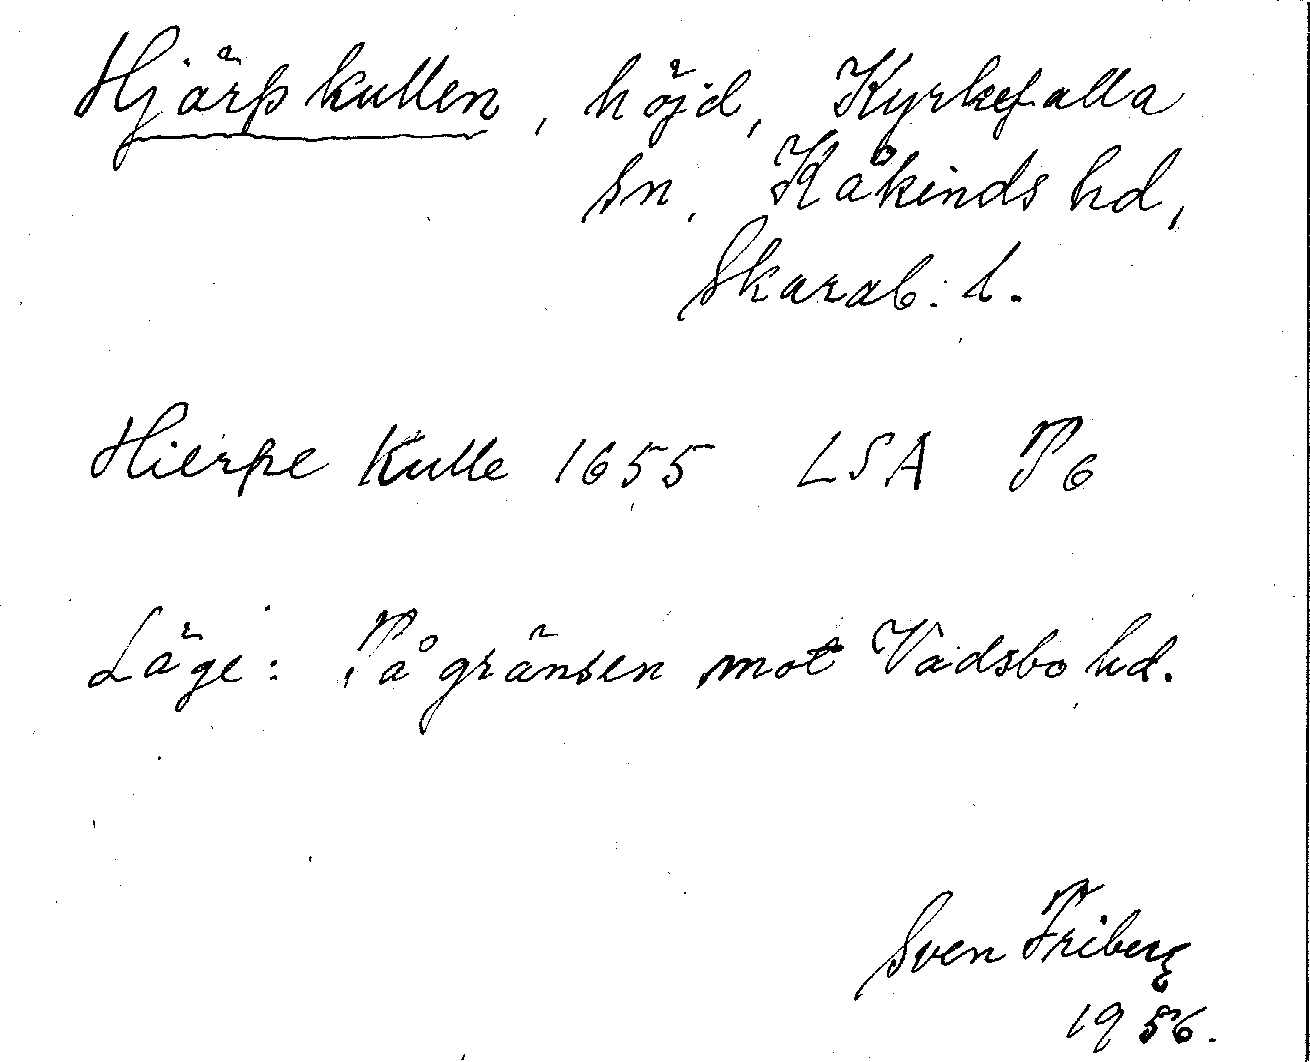 Hjärpkullen, höjd, Kyrkefalla
sn, Kåkinds hd,
Skarab. l.
Hierpe Kulle 1655 LSA P6
Läge: På gränsen mot Vadsbo hd.
Sven Friberg
1956.